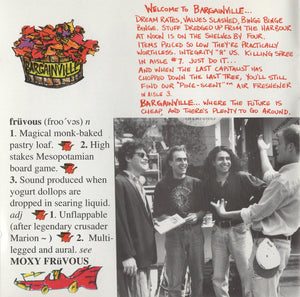 WELCOME TO BARGAINVILLE...
DREAM RATES, VALUES SLASHED, BINGE BINGE
BINGE. STUFF DREDGED UP FROM THE HARBOUR
AT NOON IS ON THE SHELVES BY FOUR.
ITEMS PRICED SO LOW THEY'RE PRACTICALLY
WORTHLESS. INTEGRITY "R" US. KILLING SPREE
IN AISLE #7. JUST DO IT...
AND WHEN THE LAST CAPITALIST HAS
CHOPPED DOWN THE LAST TREE, YOU'LL STILL
FIND OUR "PINE-SCENT"™ AIR FRESHENER
IN AISLE 3.
BARGAINVILLE... WHERE THE FUTURE IS
CHEAP, AND THERE'S PLENTY TO GO AROUND.
BARGAINVILLE
früvous (froo´vəs) n
1. Magical monk-baked
pastry loaf. 2. High
stakes Mesopotamian
board game.
3. Sound produced when
yogurt dollops are
dropped in searing liquid.
adj 1. Unflappable
(after legendary crusader
Marion ~) 2. Multi-
legged and aural. see
MOXY FRüVOUS